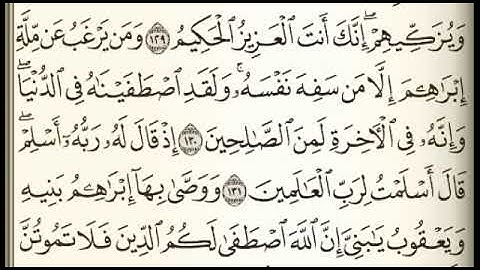 وَيُزَكِّيهِمۡۖ إِنَّكَ أَنتَ ٱلۡعَزِيزُ ٱلۡحَكِيمُ ١٢٩ وَمَن يَرۡغَبُ عَن مِّلَّةِ
إِبۡرَٰهِـۧمَ إِلَّا مَن سَفِهَ نَفۡسَهُۥۚ وَلَقَدِ ٱصۡطَفَيۡنَٰهُ فِي ٱلدُّنۡيَاۖ
وَإِنَّهُۥ فِي ٱلۡأٓخِرَةِ لَمِنَ ٱلصَّٰلِحِينَ ١٣٠ إِذۡ قَالَ لَهُۥ رَبُّهُۥٓ أَسۡلِمۡۖ
قَالَ أَسۡلَمۡتُ لِرَبِّ ٱلۡعَٰلَمِينَ ١٣١ وَوَصَّىٰ بِهَآ إِبۡرَٰهِـۧمُ بَنِيهِ
وَيَعۡقُوبُ يَٰبَنِيَّ إِنَّ ٱللَّهَ ٱصۡطَفَىٰ لَكُمُ ٱلدِّينَ فَلَا تَمُوتُنَّ